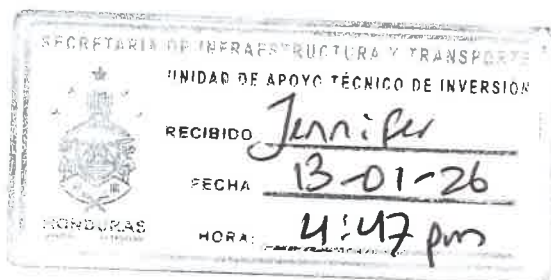 SECRETARIA DE INFRAESTRUCTURA Y TRANSPORTE
UNIDAD DE APOYO TÉCNICO DE INVERSION
RECIBIDO Jennifer
FECHA 13-01-26
HONDURAS
HORA: 4:47 pm